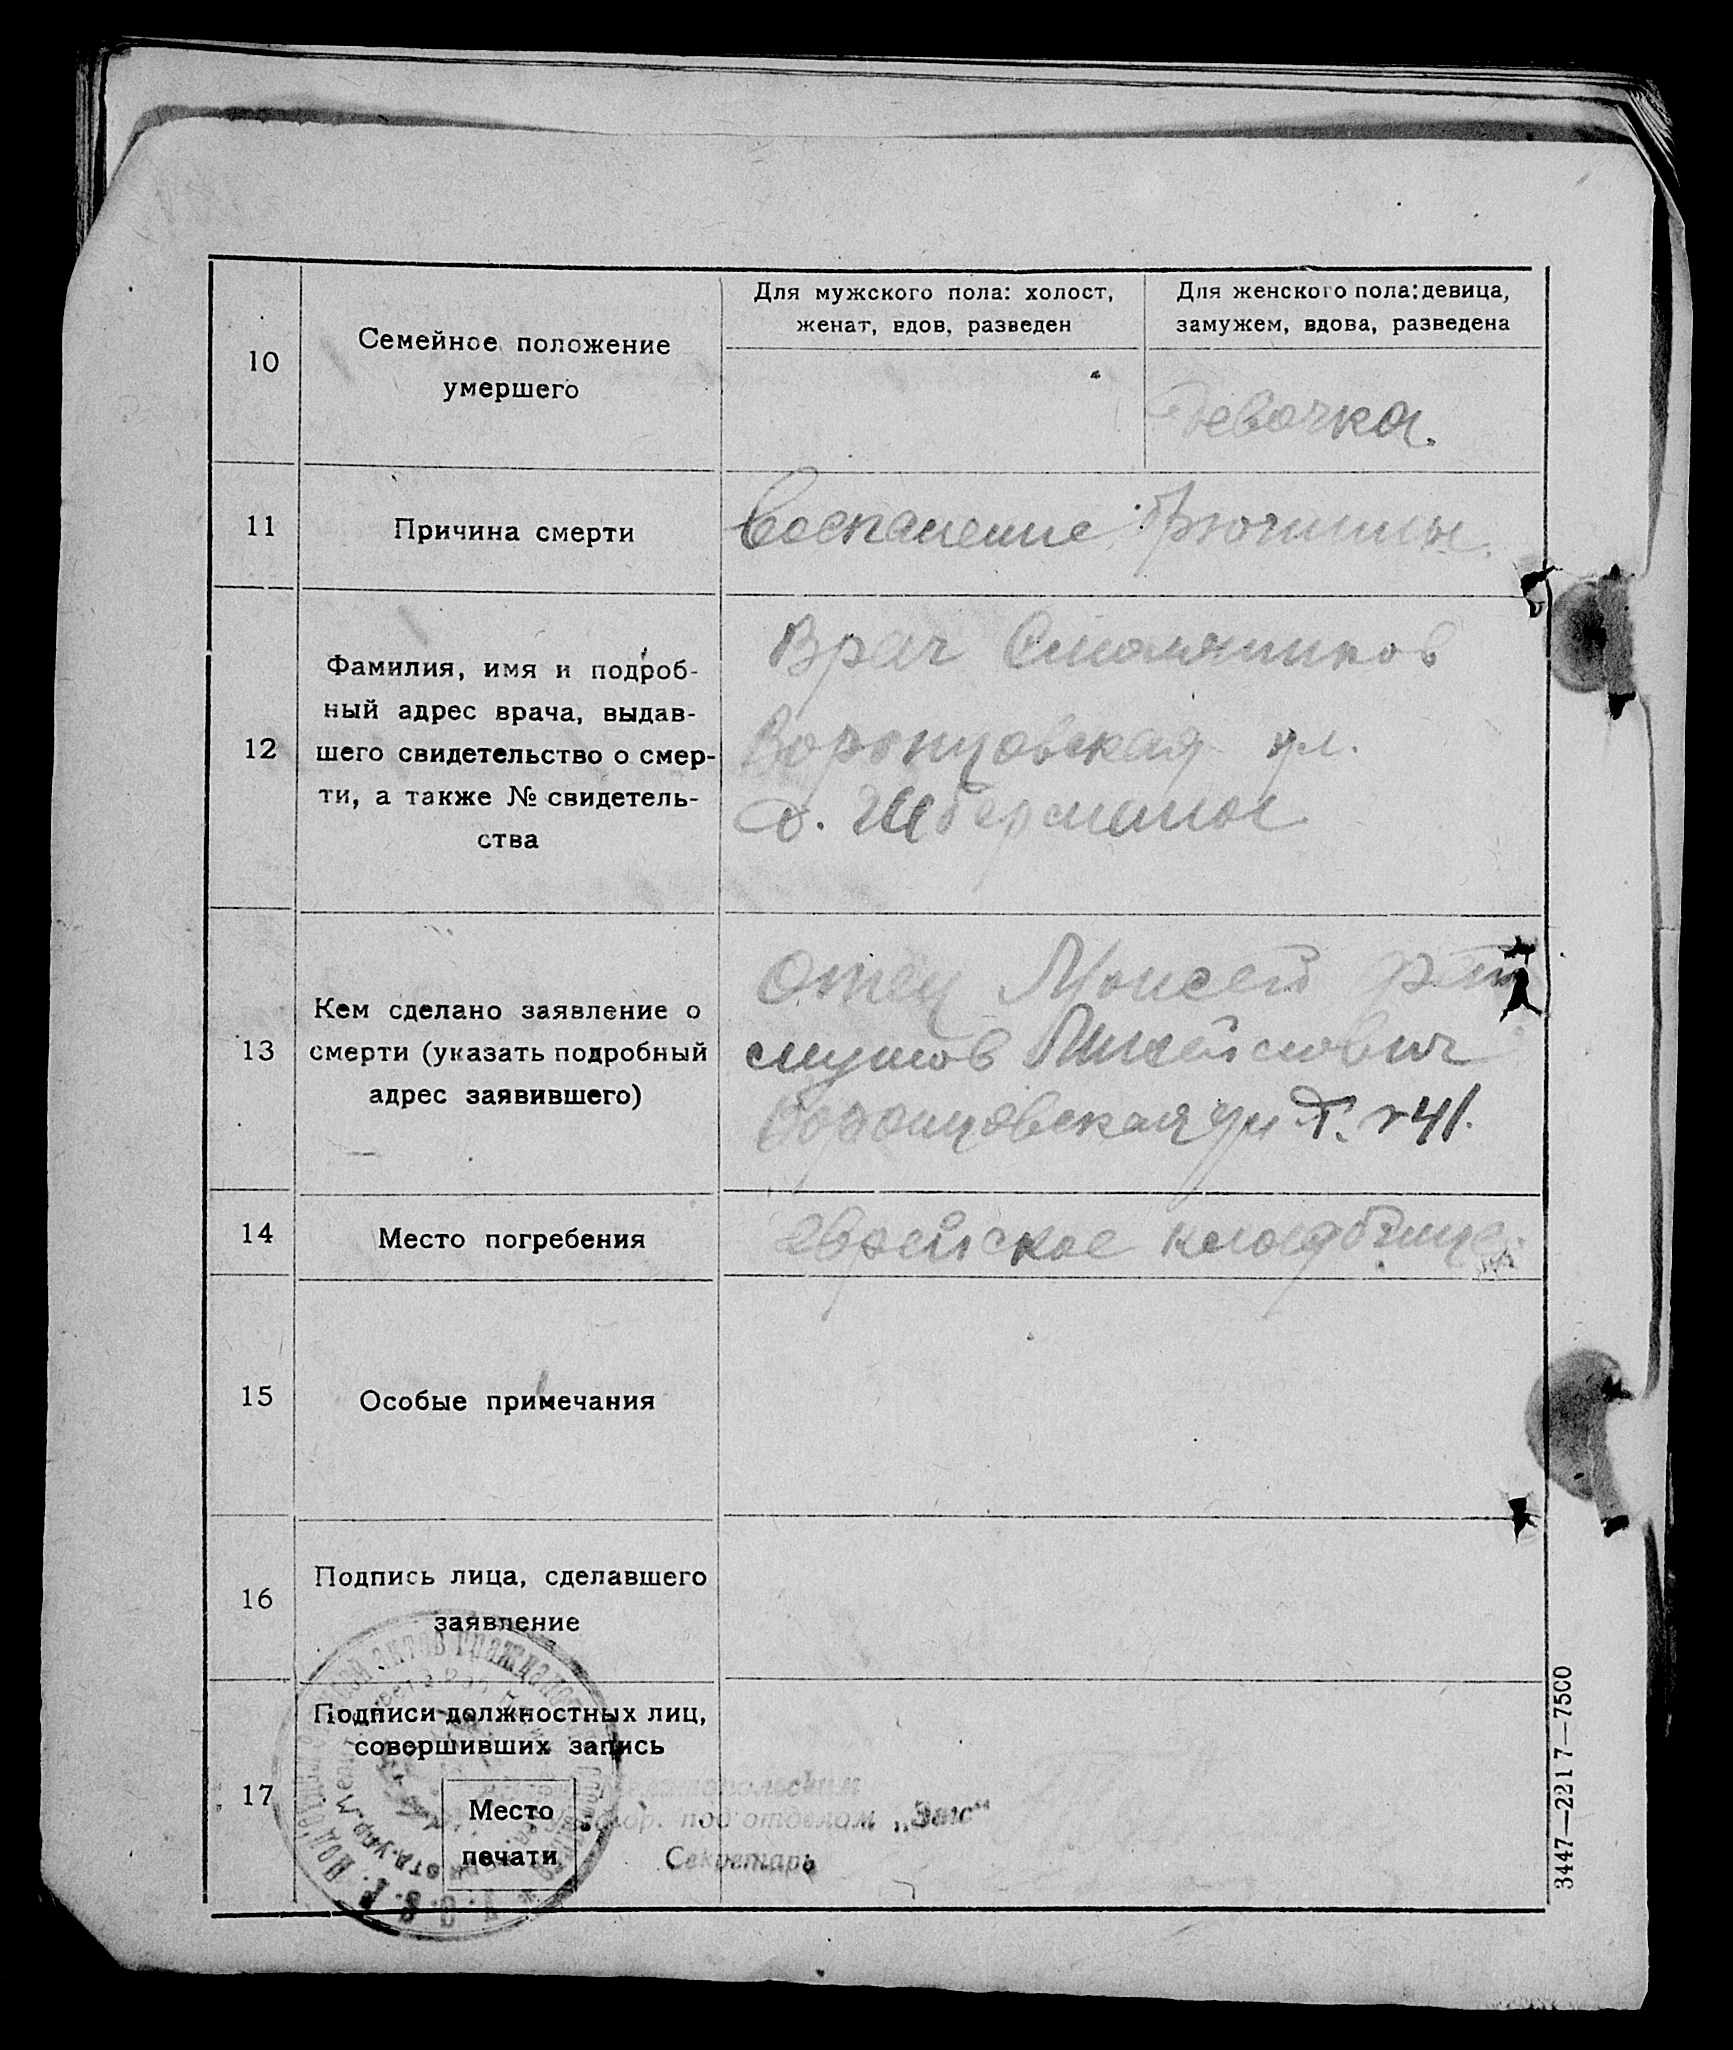 10
Семейное положение
умершего
Для мужского пола: холост,
женат, вдов, разведен
Для женского пола: девица,
замужем, вдова, разведена
Девочка.
11
Причина смерти
Воспаление брюшины.
12
Фамилия, имя и подроб-
ный адрес врача, выдав-
шего свидетельство о смер-
ти, а также № свидетель-
ства
Врач
Воронцовская ул.
д.
13
Кем сделано заявление о
смерти (указать подробный
адрес заявившего)
Отец Моисей
Воронцовская ул 41.
14
Место погребения
Еврейское кладбище
15
Особые примечания
16
Подпись лица, сделавшего
заявление
17
Подписи должностных лиц,
совершивших запись
Место
печати
под'отделом „Загс“
Секретарь
3447—2217—7500